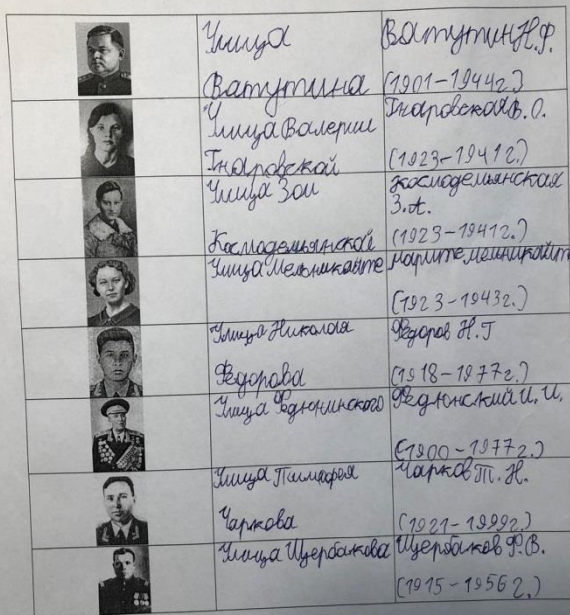 Улица Ватутин Н.Ф.
Ватутина (1901-1944г.)
Улица Валерии Гнаровская В.О.
Гнаровской (1923-1941г.)
Улица Зои Космодемьянская
З.А.
Космодемьянской (1923-1941г.)
Улица Мельникайте Марите Мельникайте
(1923-1943г.)
Улица Николая Фёдоров Н.Г
Фёдорова (1918-1977г.)
Улица Федюнинского Федюнский И.И.
(1900-1977г.)
Улица Тимофея Чарков Т.Н.
Чаркова (1921-1999г.)
Улица Щербакова Щербаков Ф.В.
(1915-1956г.)